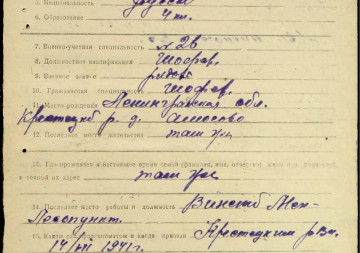 5. Национальность русский
6. Образование 4 кл.
7. Военно-учетная специальность № 26
8. Должностная квалификация Шофер.
9. Военное звание рядов.
10. Гражданская специальность Шофер.
11. Место рождения Ленинградская обл.
Крестецкий р. д.
12. Последнее место жительства там же
13. Где проживает в настоящее время семья (фамилия, имя, отчество) жены или родителей
и точный их адрес там же
14. Последнее место работы и должность
Лесопункт.
15. Каким военкоматом и когда призван Крестецким РВК.
14/VII 1941г.